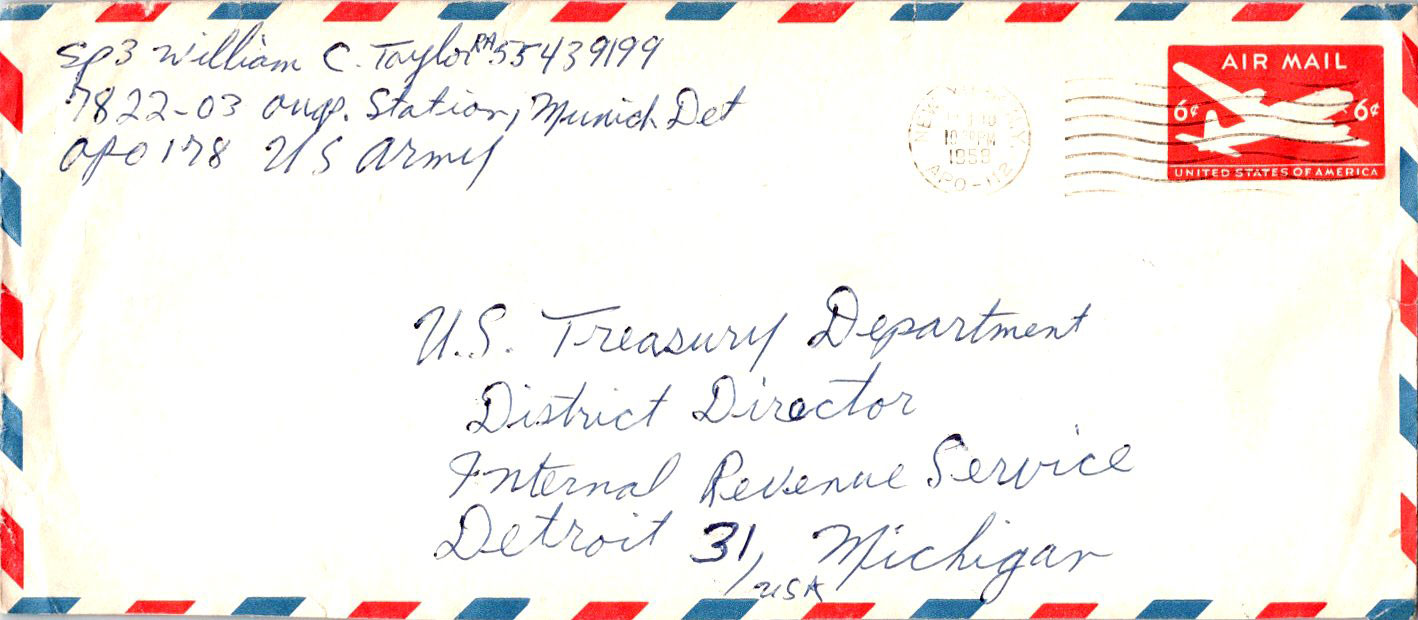 Sp3 William C. Taylor RA55439199
7822-03 Station, Munich Det
APO 178 US Army
NEW N.Y.
10 PM
1958
APO-112
AIR MAIL
6¢ 6¢
UNITED STATES OF AMERICA
U.S. Treasury Department
District Director
Internal Revenue Service
Detroit 31, Michigan
USA